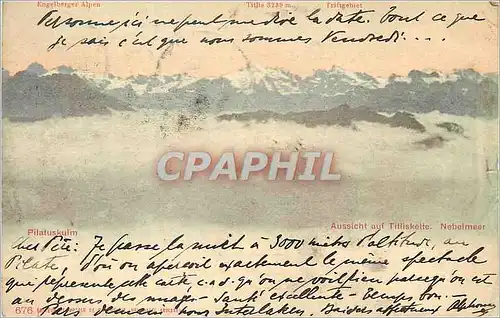 Engelberger Alpen Titlis 3239 m. Triftgebiet
Personne ici ne peut me dire la date. Tout ce que
je sais c'est que nous sommes Vendredi....
CPAPHIL
Pilatuskulm Aussicht auf Titliskette. Nebelmeer
Je passe la nuit à 3000 mètres d'altitude, au
Pilate, d'où on aperçoit exactement le même spectacle
que représente cette carte, c.a.d. qu'on ne voit rien parce qu'on est
au dessus des nuages - Santé excellente - temps bon.
676 demain nous Interlaken. affectueux Alphonse